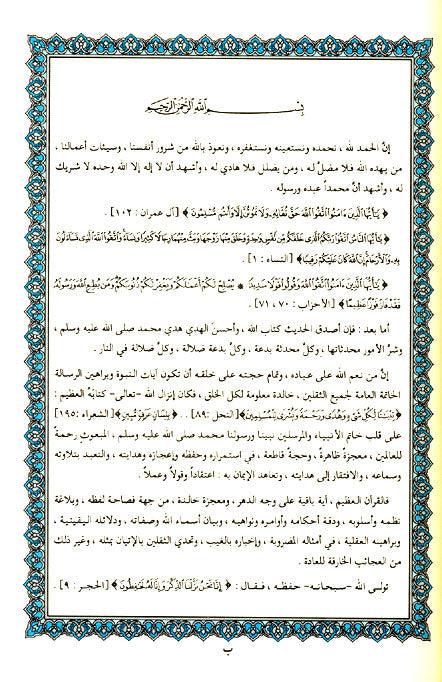 بِسْمِ اللَّهِ الرَّحْمَٰنِ الرَّحِيمِ
إنَّ الحمد لله ، نحمده ونستعينه ونستغفره ، ونعوذ بالله من شرور أنفسنا ، وسيئات أعمالنا ،
من يهده الله فلا مضلَّ له ، ومن يضلل فلا هادي له ، وأشهد أن لا إله إلا الله وحده لا شريك
له ، وأشهد أنَّ محمداً عبده ورسوله .
﴿ يَٰٓأَيُّهَا ٱلَّذِينَ ءَامَنُوا۟ ٱتَّقُوا۟ ٱللَّهَ حَقَّ تُقَاتِهِۦ وَلَا تَمُوتُنَّ إِلَّا وَأَنتُم مُّسْلِمُونَ ﴾ [آل عمران : ١٠٢] .
﴿ يَٰٓأَيُّهَا ٱلنَّاسُ ٱتَّقُوا۟ رَبَّكُمُ ٱلَّذِى خَلَقَكُم مِّن نَّفْسٍ وَٰحِدَةٍ وَخَلَقَ مِنْهَا زَوْجَهَا وَبَثَّ مِنْهُمَا رِجَالًا كَثِيرًا وَنِسَآءً وَٱتَّقُوا۟ ٱللَّهَ ٱلَّذِى تَسَآءَلُونَ
بِهِۦ وَٱلْأَرْحَامَ إِنَّ ٱللَّهَ كَانَ عَلَيْكُمْ رَقِيبًا ﴾ [النساء : ١] .
﴿ يَٰٓأَيُّهَا ٱلَّذِينَ ءَامَنُوا۟ ٱتَّقُوا۟ ٱللَّهَ وَقُولُوا۟ قَوْلًا سَدِيدًا * يُصْلِحْ لَكُمْ أَعْمَٰلَكُمْ وَيَغْفِرْ لَكُمْ ذُنُوبَكُمْ وَمَن يُطِعِ ٱللَّهَ وَرَسُولَهُۥ
فَقَدْ فَازَ فَوْزًا عَظِيمًا ﴾ [الأحزاب : ٧٠ ، ٧١] .
أما بعد : فإن أصدق الحديث كتاب الله ، وأحسنَ الهدي هدي محمد صلى الله عليه وسلم ،
وشرَّ الأمور محدثاتها ، وكلَّ محدثة بدعة ، وكلَّ بدعة ضلالة ، وكلَّ ضلالة في النار .
إنَّ من نعم الله على عباده ، وتمام حجته على خلقه أن تكون آيات النبوة وبراهين الرسالة
الخاتمة العامة لجميع الثقلين ، خالدة معلومة لكل الخلق ، فكان إنزال الله -تعالى- كتابَهُ العظيم :
﴿ تِبْيَٰنًا لِّكُلِّ شَىْءٍ وَهُدًى وَرَحْمَةً وَبُشْرَىٰ لِلْمُسْلِمِينَ ﴾ [النحل : ٨٩] . ﴿ بِلِسَانٍ عَرَبِىٍّ مُّبِينٍ ﴾ [الشعراء : ١٩٥]
على قلب خاتم الأنبياء والمرسلين نبينا ورسولنا محمد صلى الله عليه وسلم ، المبعوث رحمةً
للعالمين ، معجزةً ظاهرةً ، وحجةً قاطعة ، في استمراره وحفظه وإعجازه وهدايته ، والتعبد بتلاوته
وسماعه ، والافتقار إلى هدايته ، وتعاهد الإيمان به : اعتقاداً وقولاً وعملاً .
فالقرآن العظيم ، آية باقية على وجه الدهر ، ومعجزة خالدة ، من جهة فصاحة لفظه ، وبلاغة
نظمه وأسلوبه ، ودقة أحكامه وأوامره ونواهيه ، وبيان أسماء الله وصفاته ، ودلائله اليقينية ،
وبراهينه العقلية ، في أمثاله المضروبة ، وإخباره بالغيب ، وتحدي الثقلين بالإتيان بمثله ، وغير ذلك
من العجائب الخارقة للعادة .
تولى الله -سبحانه- حفظه ، فقال : ﴿ إِنَّا نَحْنُ نَزَّلْنَا ٱلذِّكْرَ وَإِنَّا لَهُۥ لَحَٰفِظُونَ ﴾ [الحجر : ٩] .
ب